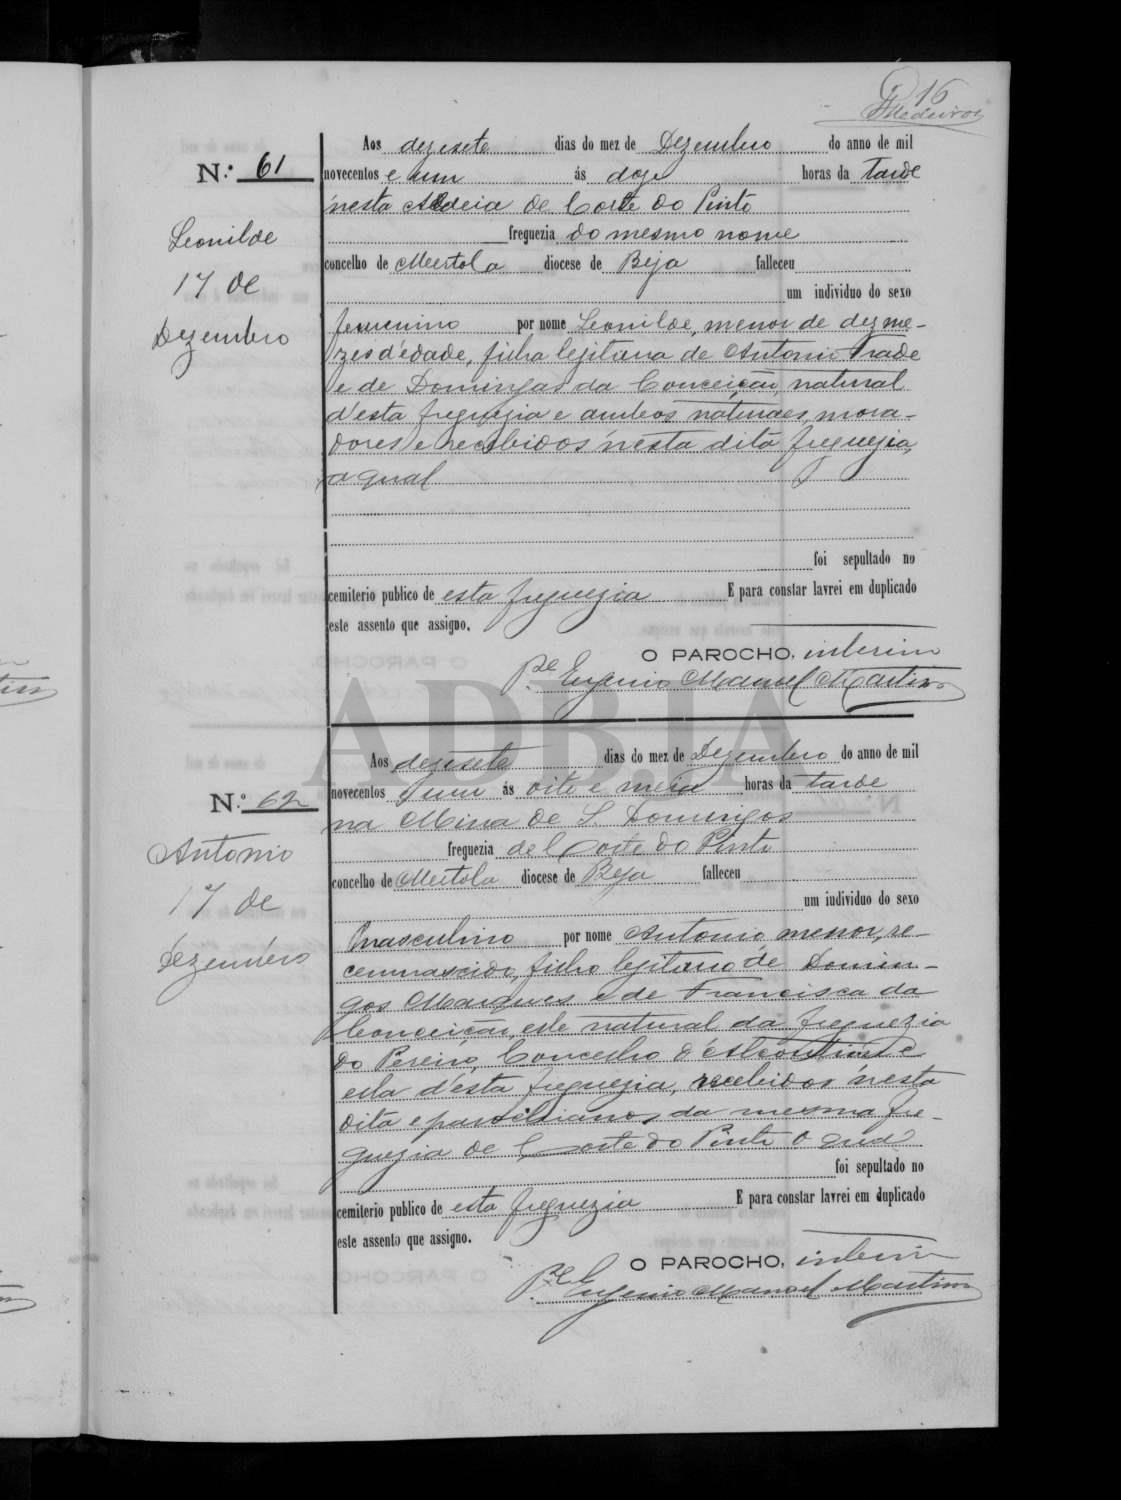 16
Medeiros
Aos dezesete dias do mez de Dezembro do anno de mil
N.º 61
novecentos e um ás doze horas da tarde
n'esta Aldeia de Corte do Pinto
Leonilde
freguezia do mesmo nome
concelho de Mertola diocese de Beja falleceu
17 de
um individuo do sexo
Dezembro
femenino por nome Leonilde, menor de dez me-
zes d'edade, filha lejitima de Antonio Frade
e de Domingas da Conceição, natural
d'esta freguezia e ambos naturaes, mora-
dores e recebidos n'esta dita freguezia,
a qual
foi sepultado no
cemiterio publico de esta freguezia E para constar lavrei em duplicado
este assento que assigno.
O PAROCHO, interim
P.e Eugenio Manoel Martins
ADBJA
Aos dezesete dias do mez de Dezembro do anno de mil
N.º 62
novecentos e um ás oito e meia horas da tarde
na Mina de S. Domingos
Antonio
freguezia de Corte do Pinto
concelho de Mertola diocese de Beja falleceu
17 de
um individuo do sexo
Dezembro
masculino por nome Antonio, menor, re-
cemnascido, filho lejitimo de Domin-
gos Marques e de Francisca da
Conceição, este natural da freguezia
do Pereiro, Concelho d'Alcoutim e
ella d'esta freguezia, recebidos n'esta
dita e parochianos da mesma fre-
guezia de Corte do Pinto o qual
foi sepultado no
cemiterio publico de esta freguezia E para constar lavrei em duplicado
este assento que assigno.
O PAROCHO, interim
P.e Eugenio Manoel Martins